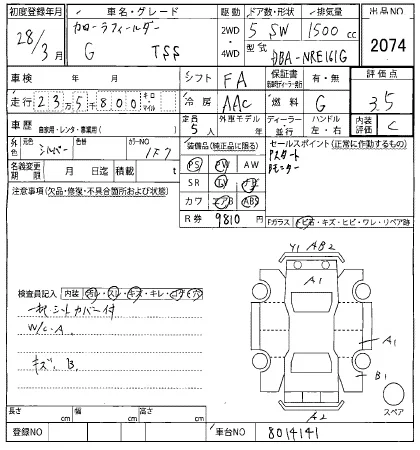 初度登録年月
車名・グレード
駆動
ドア数・形状
排気量
出品NO
28/3月
カローラフィールダー
G
TSS
2WD
4WD
5
SW
1500 cc
型式
DBA-NRE161G
2074
車検
年
月
シフト
FA
保証書
有・無
評価点
3.5
走行
235千800
キロ
マイル
冷房
AAC
燃料
G
車歴
自家用・レンタ・事業用( )
定員
5人
外車モデル
年
ディーラー
並行
ハンドル
左・右
内装評価
C
外色
元色
シルバー
色替
カラーNO
1F7
装備品(純正品に限る)
セールスポイント(正常に作動するもの)
名義変更期限
月
日迄
積載
t
PS
PW
AW
SR
カワ
エアB
ABS
R券
9810
円
Pスタート
Bモニター
注意事項(欠品・修復・不具合箇所および状態)
Fガラス
キズ・ヒビ・ワレ・リペア跡
検査員記入
内装
W/C.A
キズ.B.
Y1
AB2
A1
A1
B1
A2
スペア
長さ
cm
幅
cm
高さ
cm
登録NO
車台NO
8014141